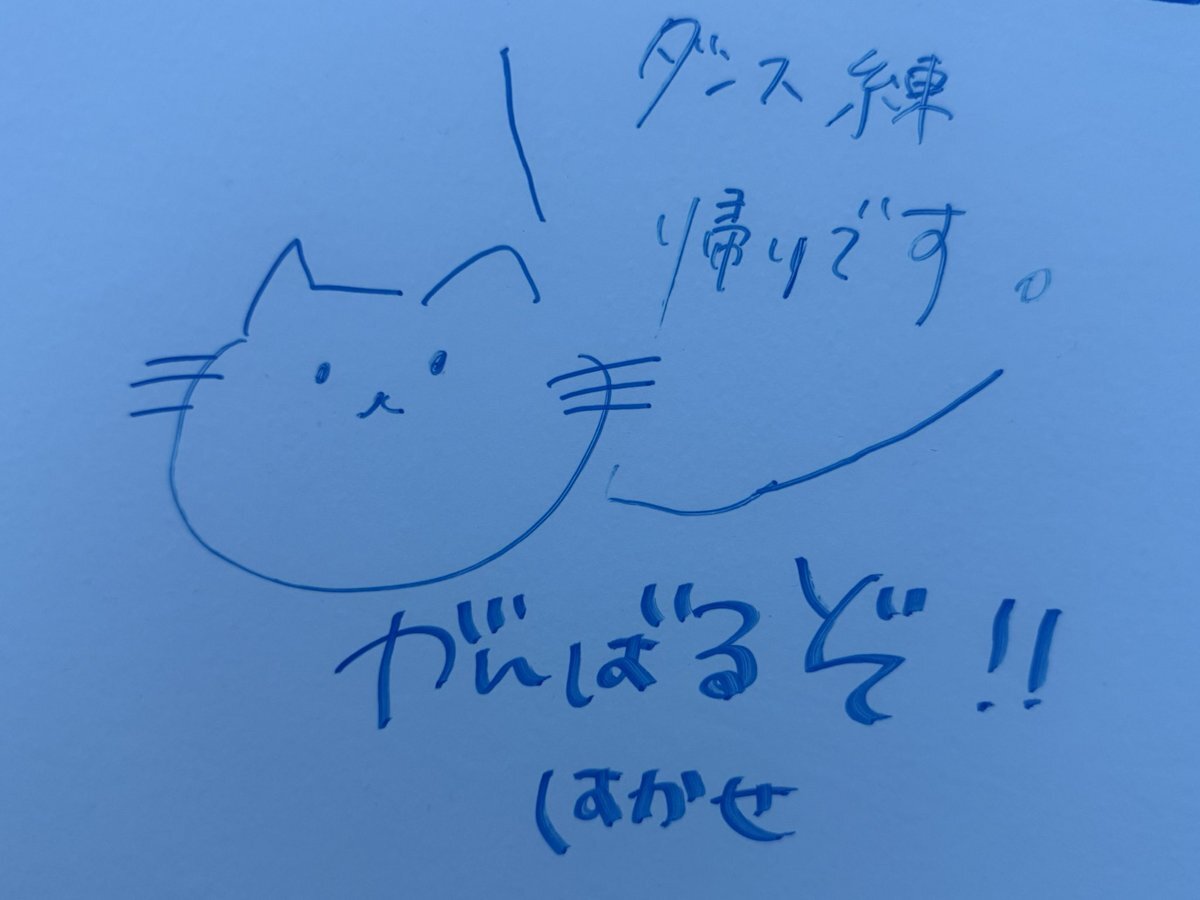 ダンス練
帰りです。
がんばるぞ!!
はかせ